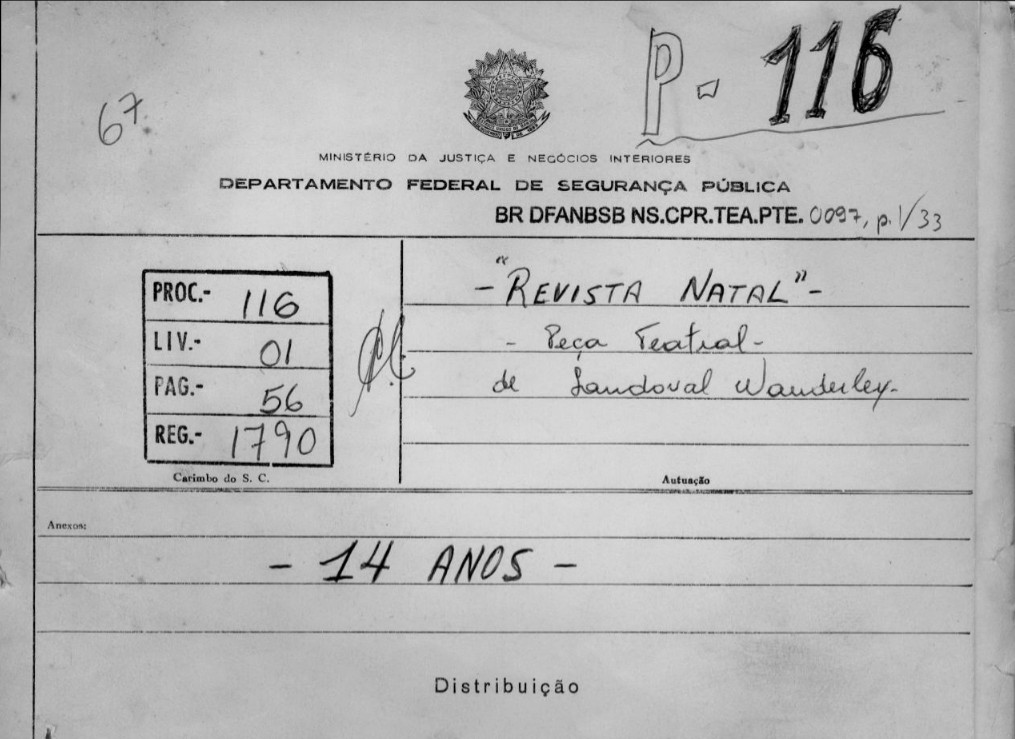 P - 116
67
MINISTÉRIO DA JUSTIÇA E NEGÓCIOS INTERIORES
DEPARTAMENTO FEDERAL DE SEGURANÇA PÚBLICA
BR DFANBSB NS.CPR.TEA.PTE. 0097, p. 1/33
PROC.- 116
LIV.- 01
PAG.- 56
REG.- 1790
Carimbo do S. C.
- "REVISTA NATAL" -
- Peça Teatral -
de Sandoval Wanderley -
Autuação
Anexos:
- 14 ANOS -
Distribuição